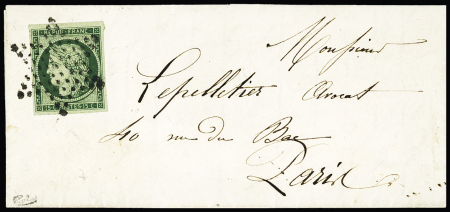 REPUB. FRANC.
15 C. POSTES 15 C.
Monsieur
Lepelletier Avocat
40 rue du Bac
Paris